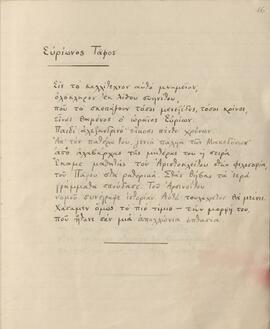 16
Εὐρίωνος Τάφος
Εἰς τὸ καλλίτεχνον αὐτὸ μνημεῖον,
ὁλόκληρον ἐκ λίθου συηνίτου,
ποὺ τὸ σκεπάζουν τόσοι μενεξέδες, τόσοι κρίνοι,
εἶναι θαμένος ὁ ὡραῖος Εὐρίων.
Παιδὶ ἀλεξανδρινό, εἴκοσι πέντε χρόνων.
Ἀπ' τὸν πατέρα του, γενιὰ παληὰ τῶν Μακεδόνων·
ἀπὸ ἀλαβάρχας τῆς μητέρας του ἡ σειρά.
Ἔκαμε μαθητὴς τοῦ Ἀριστοκλείτου στὴν φιλοσοφία,
τοῦ Πάρου στὰ ρητορικά. Στὰς Θήβας τὰ ἱερὰ
γράμματα σπούδασε. Τοῦ Ἀρσινοΐτου
νομοῦ συνέγραψε ἱστορίαν. Αὐτὸ τουλάχιστον θὰ μείνει.
Χάσαμεν ὅμως τὸ πιὸ τίμιο — τὴν μορφή του,
ποὺ ἤτανε σὰν μιὰ ἀπολλώνια ὀπτασία.